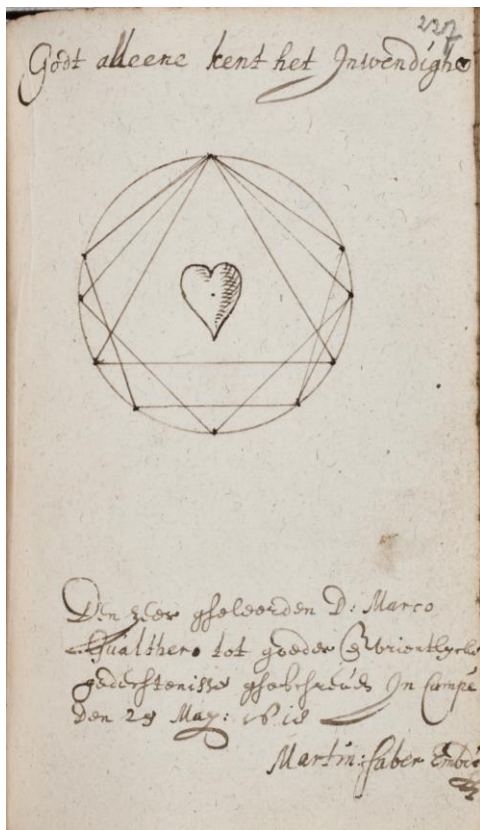 227
Godt alleene kent het Inwendighe
Den zeer gheleerden D: Marco
Gualthero tot goeder & vrientlycke
gedechtenisse gheschreven In Campē
den 29 May: 1618
Martin: faber Embd